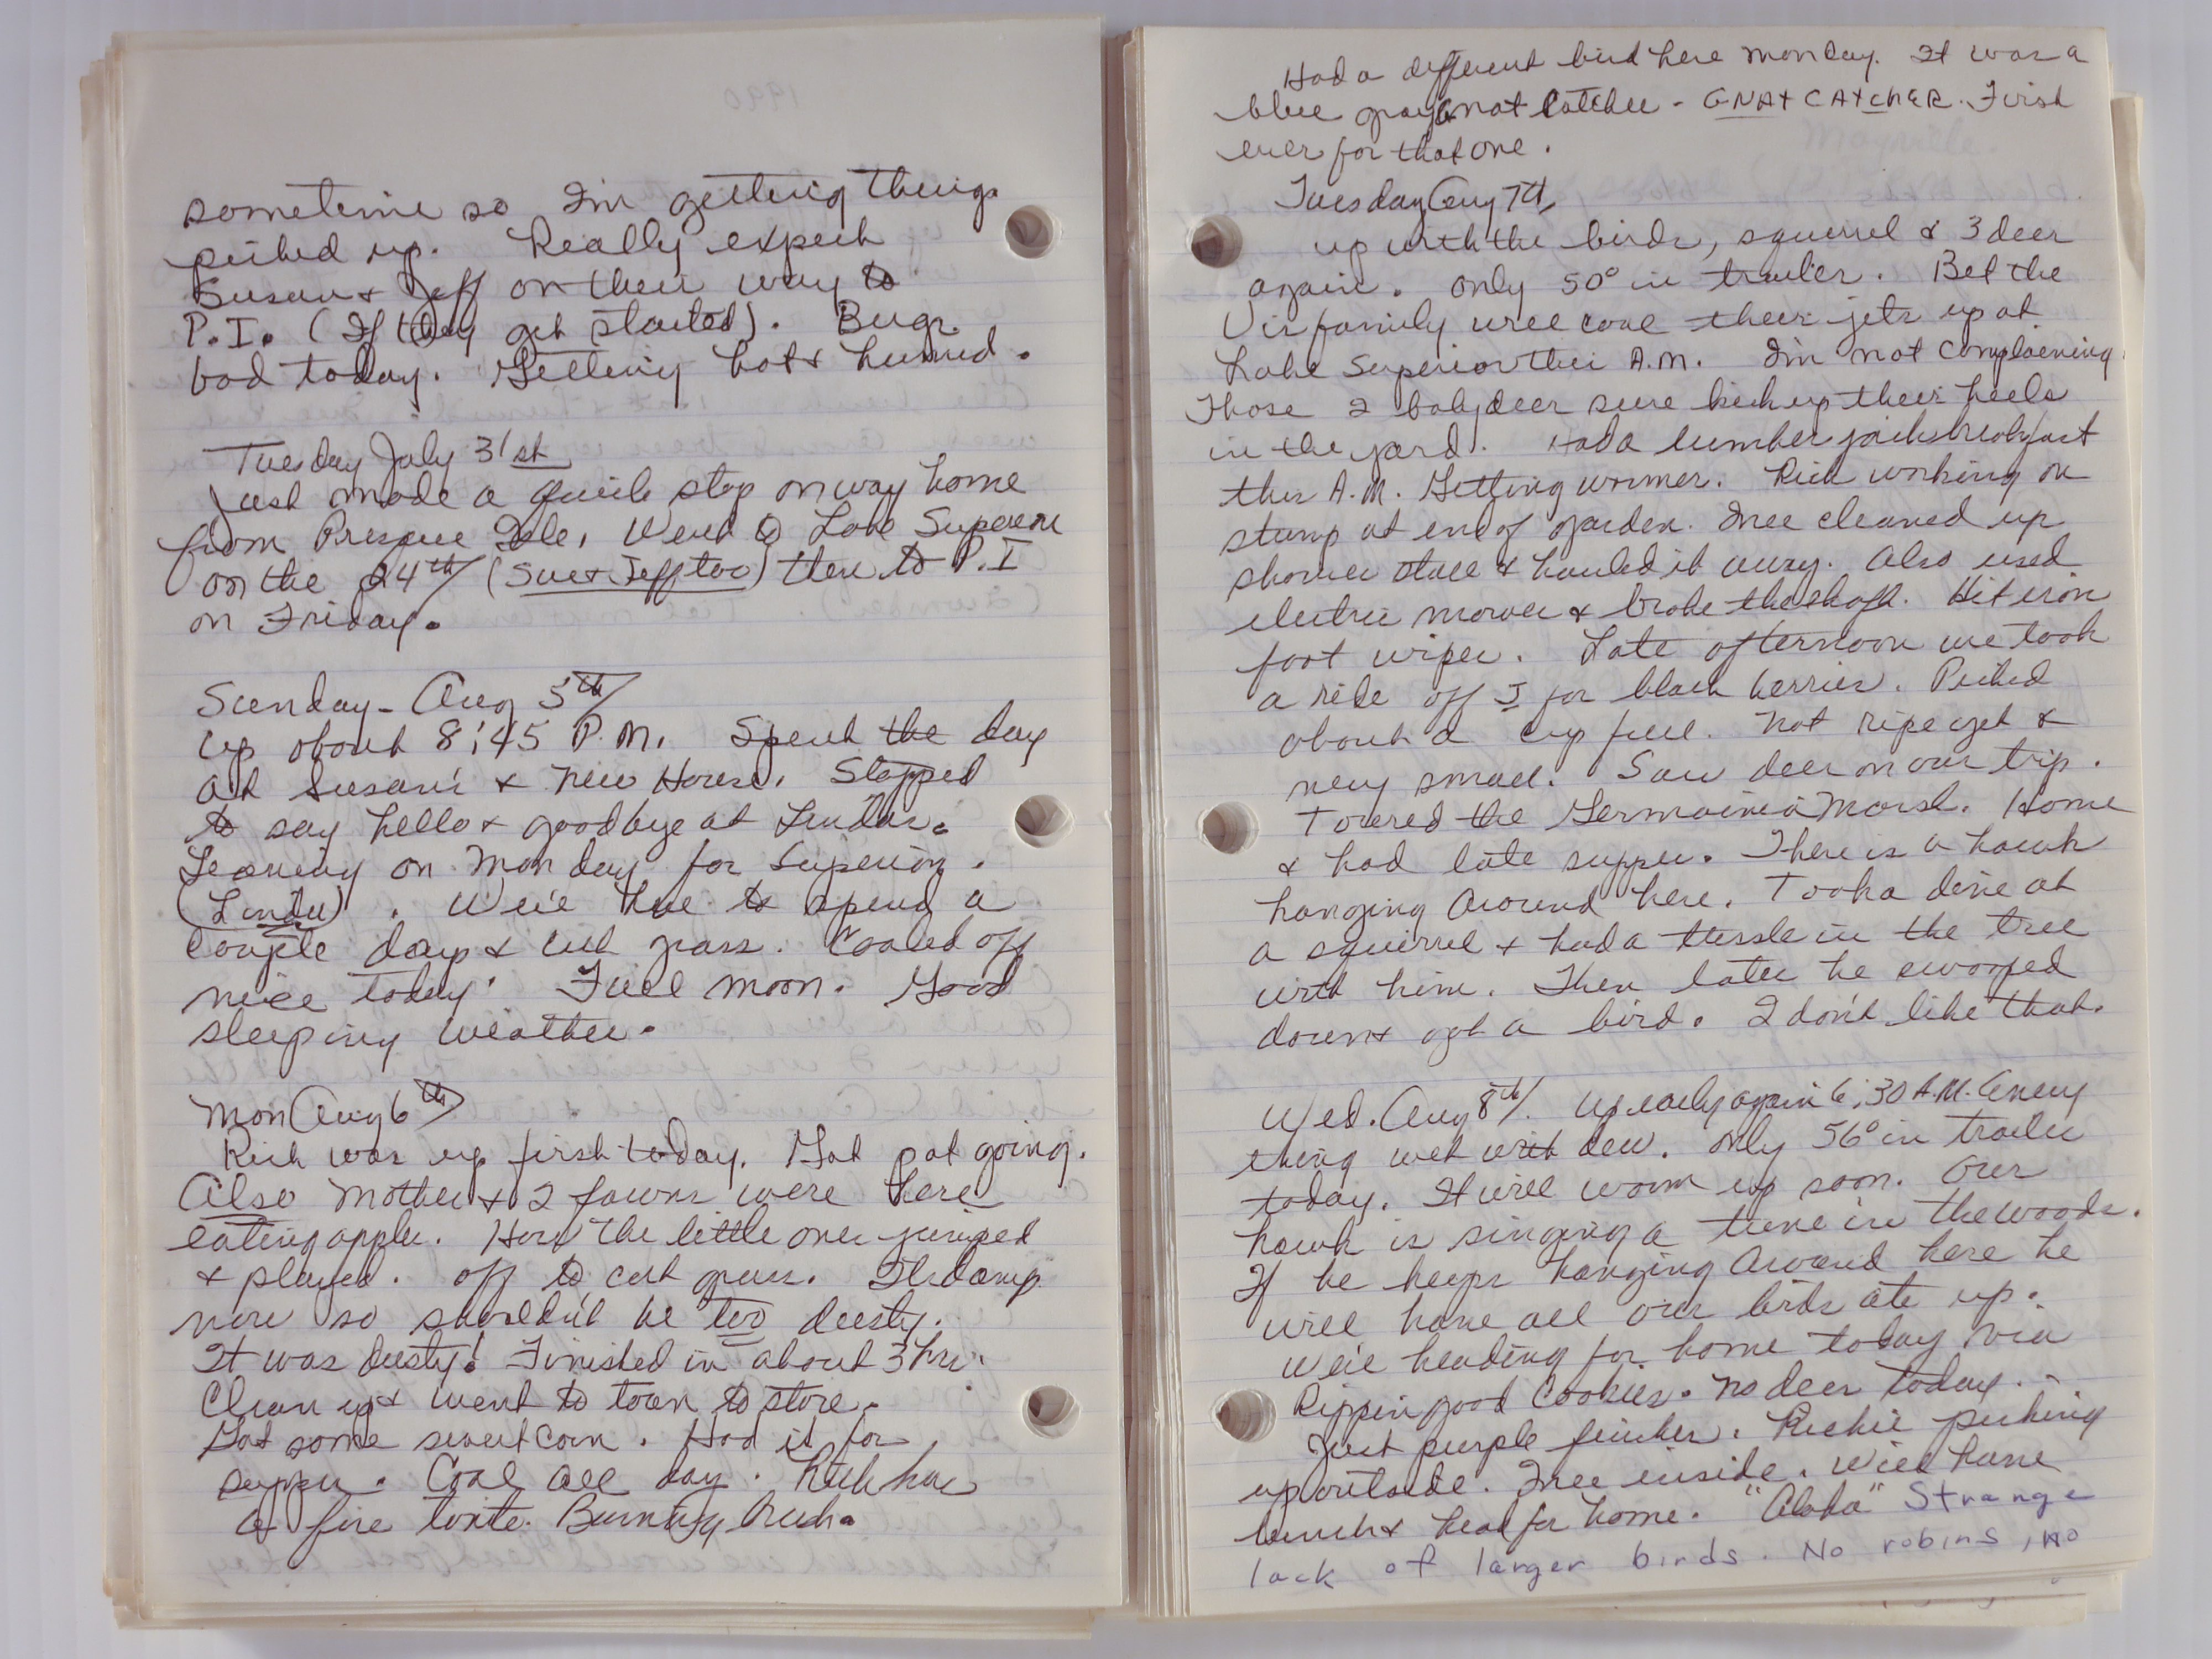 sometime so I'm getting things
picked up. Really expect
Susan & Jeff on their way to
P.I. (If they get started). Bugs
bad today. Getting hot & humid.
Tuesday July 31st
Just made a quick stop on way home
from Presque Isle. Went to Lake Superior
on the 24th (Sue & Jeff too) then to P.I
on Friday.
Sunday - Aug 5th
Up about 8:45 P.M. Spent the day
at Susan's & New House. Stopped
to say hello & goodbye at Lindas.
Leaving on Monday for Superior.
(Linda). We're here to spend a
couple days & cut grass. Cooled off
nice today. Full moon. Good
sleeping weather.
Mon Aug 6th
Rich was up first today. Got pot going.
Also Mother & 2 fawns were here
eating apples. How the little ones jumped
& played. Off to cut grass. It's damp
now so shouldn't be too dusty.
It was dusty! Finished in about 3 hrs.
Clean up & went to town to store.
Got some sweet corn. Had it for
supper. Cool all day. Rich has
a fire tonite. Burning brush.
Had a different bird here Monday. It was a
blue gray Gnat Catcher - GNAT CATCHER. First
ever for that one.
Tuesday Aug 7th
up with the birds, squirrel & 3 deer
again. Only 50° in trailer. Bet the
Vis family will cool their jets up at
Lake Superior this A.M. I'm not complaining.
Those 2 baby deer sure kick up their heels
in the yard. Had a lumber jacks breakfast
this A.M. Getting warmer. Rich working on
stump at end of garden. Mee cleaned up
shower stall & hauled it away. Also used
electric mower & broke the shaft. Hit iron
foot wiper. Late afternoon we took
a ride off J for black berries. Picked
about a cup full. Not ripe yet &
very small. Saw deer on our trip.
Toured the Germainia Marsh. Home
& had late supper. There is a hawk
hanging around here. Took a dive at
a squirrel & had a tussle in the tree
with him. Then later he swooped
down & got a bird. I don't like that.
Wed. Aug 8th. Up early again 6:30 A.M. Every
thing wet with dew. Only 56° in trailer
today. It will warm up soon. Our
hawk is singing a tune in the woods.
If he keeps hanging around here he
will have all our birds ate up.
We're heading for home today via
Rippin good Cookies. No deer today.
Just purple finches. Richie picking
up outside. Mee inside. Will have
lunch & head for home. "Aloha" Strange
lack of larger birds. No robins, no